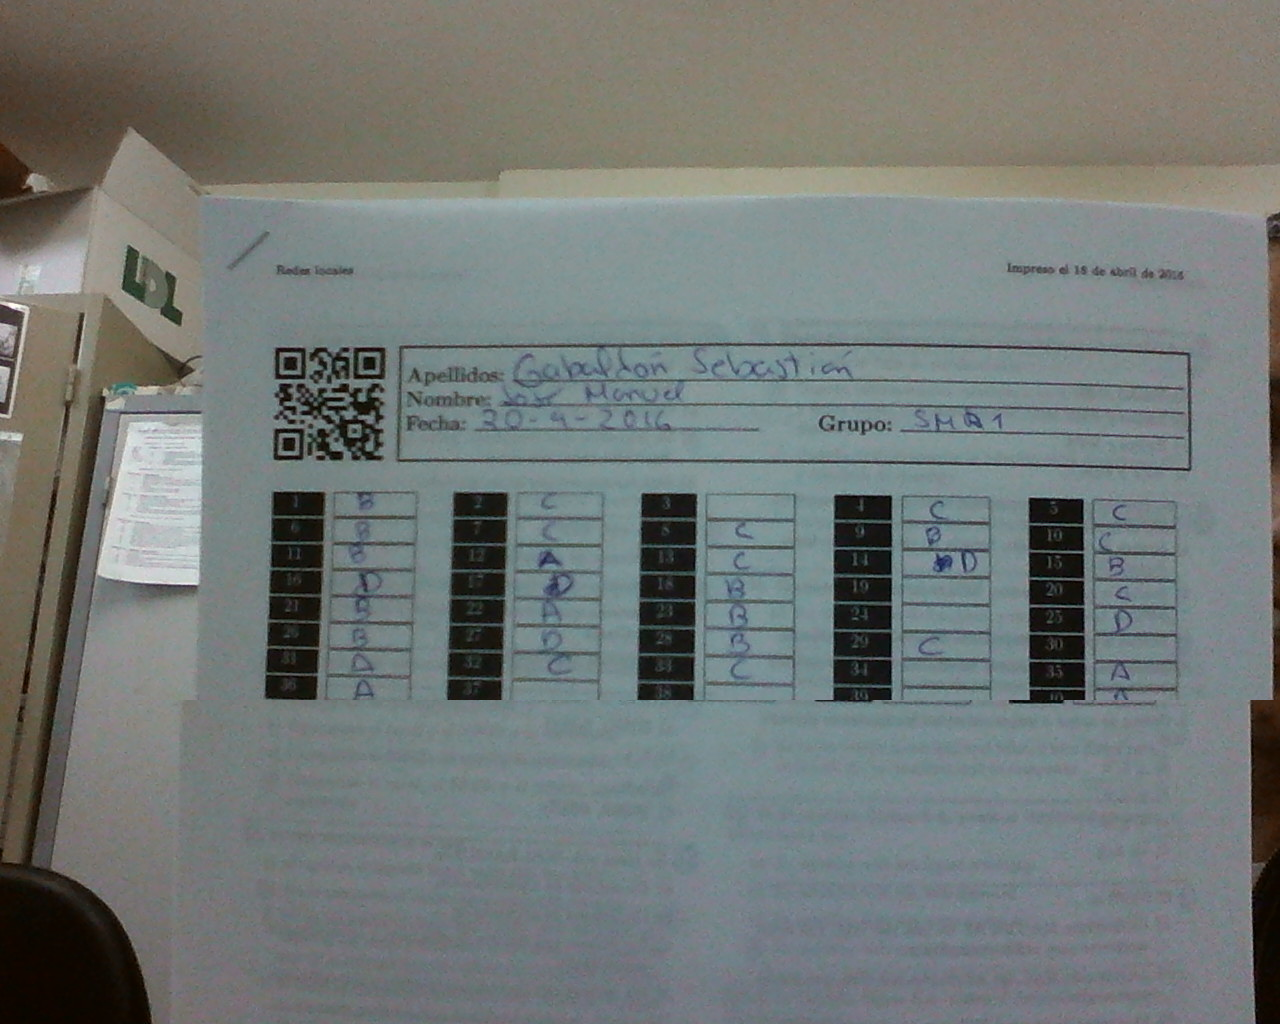 LDL
Redes locales
Impreso el 18 de abril de 2016
Apellidos: Gabaldón Sebastián
Nombre: Jose Manuel
Fecha: 20-4-2016 Grupo: SMR1
1 B 2 C 3 4 C 5 C
6 B 7 C 8 C 9 B 10 C
11 B 12 A 13 C 14 D 15 B
16 D 17 D 18 B 19 20 C
21 B 22 A 23 B 24 25 D
26 B 27 D 28 B 29 C 30
31 D 32 C 33 C 34 35 A
36 A 37 38 39 40